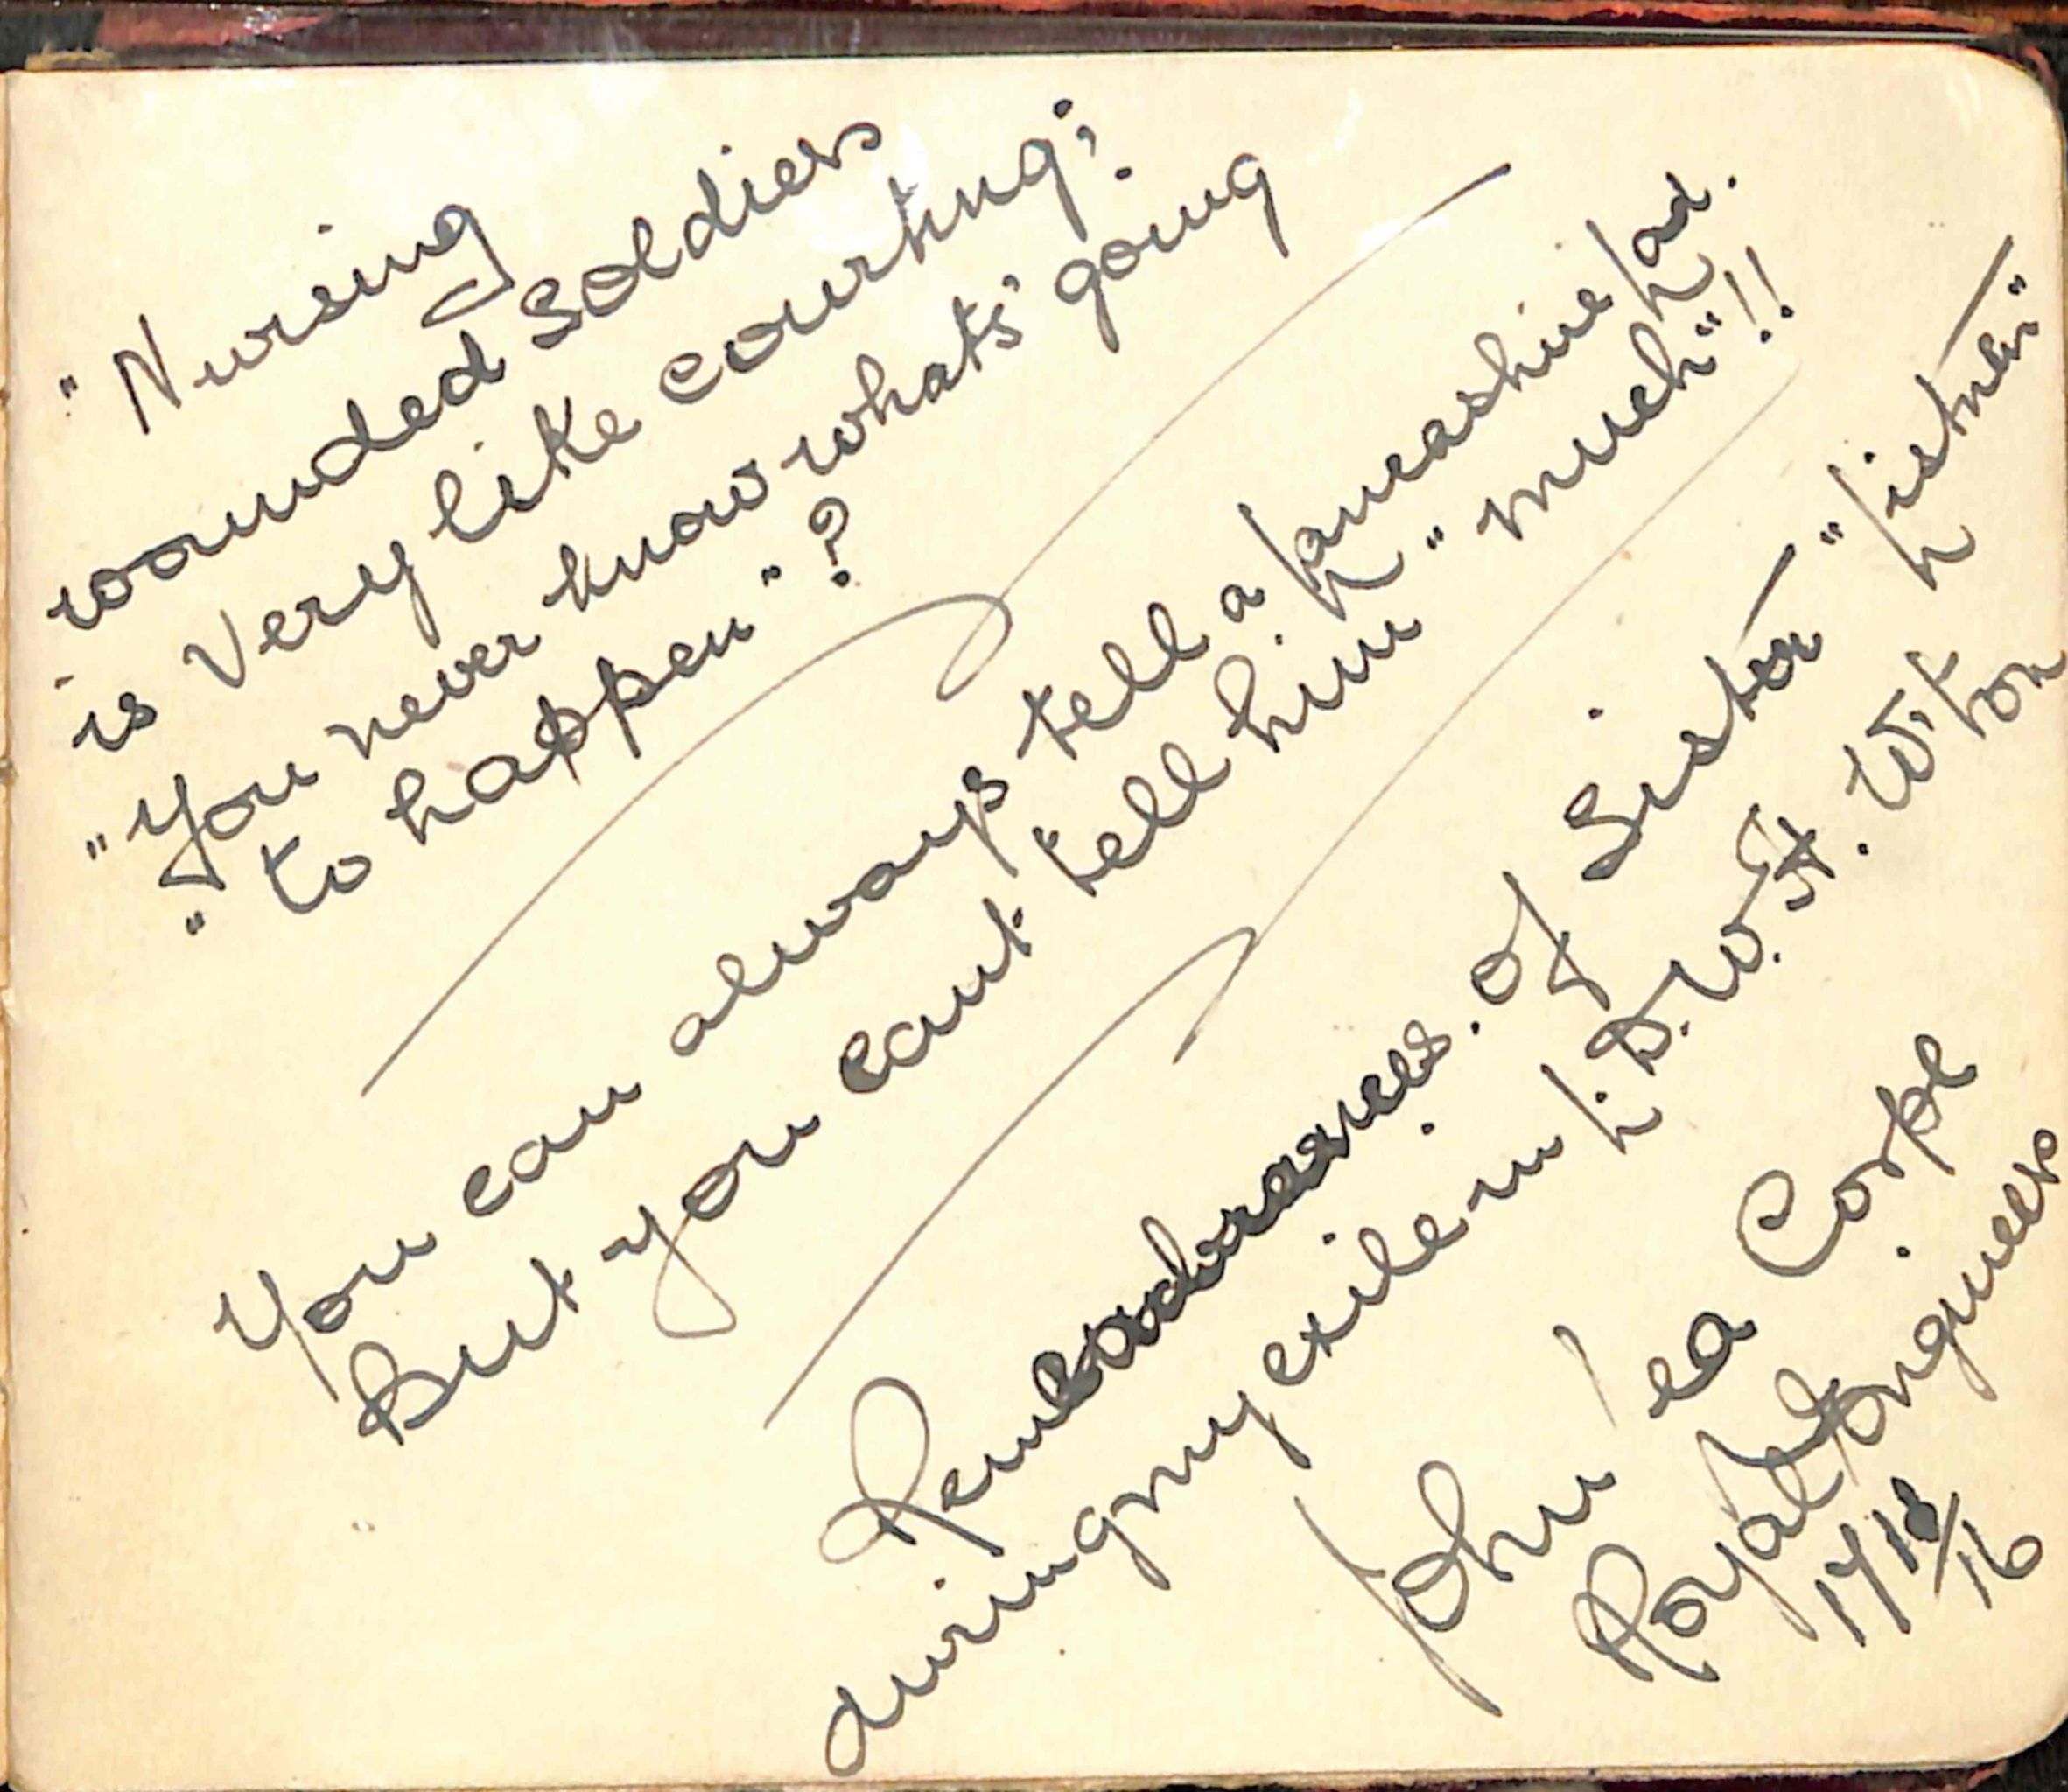 "Nursing
wounded soldiers
is very like courting;
"You never know whats' going
" to happen" ?
You can always tell a Lancashire Lad.
But you cant tell him "much"!!
of Sister "Listner"
during my exile in L.D.W.H. Wit
ton
John Lea Corpl
Royal Engineers
17/10/16